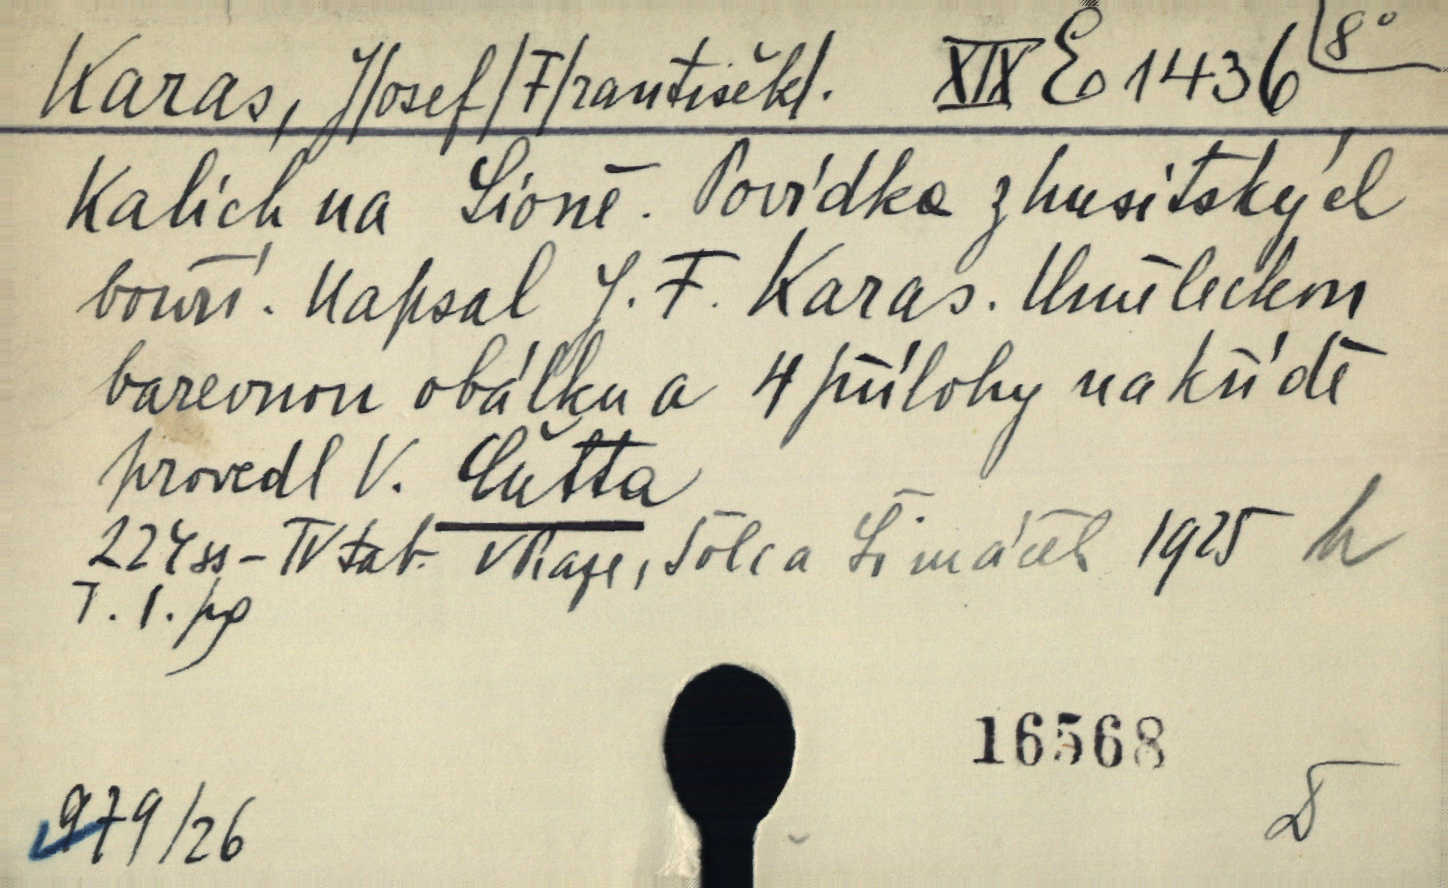 Karas, J/osef/ F/rantišek/. XIX E 1436 8°
Kalich na Sioně. Povídka z husitských
bouří. Napsal J. F. Karas. Uměleckou
barevnou obálku a 4 přílohy na křídě
provedl V. Čutta
224 ss - IV tab. V Praze, Šolc a Šimáček 1925
T. I. pg
16568
979/26